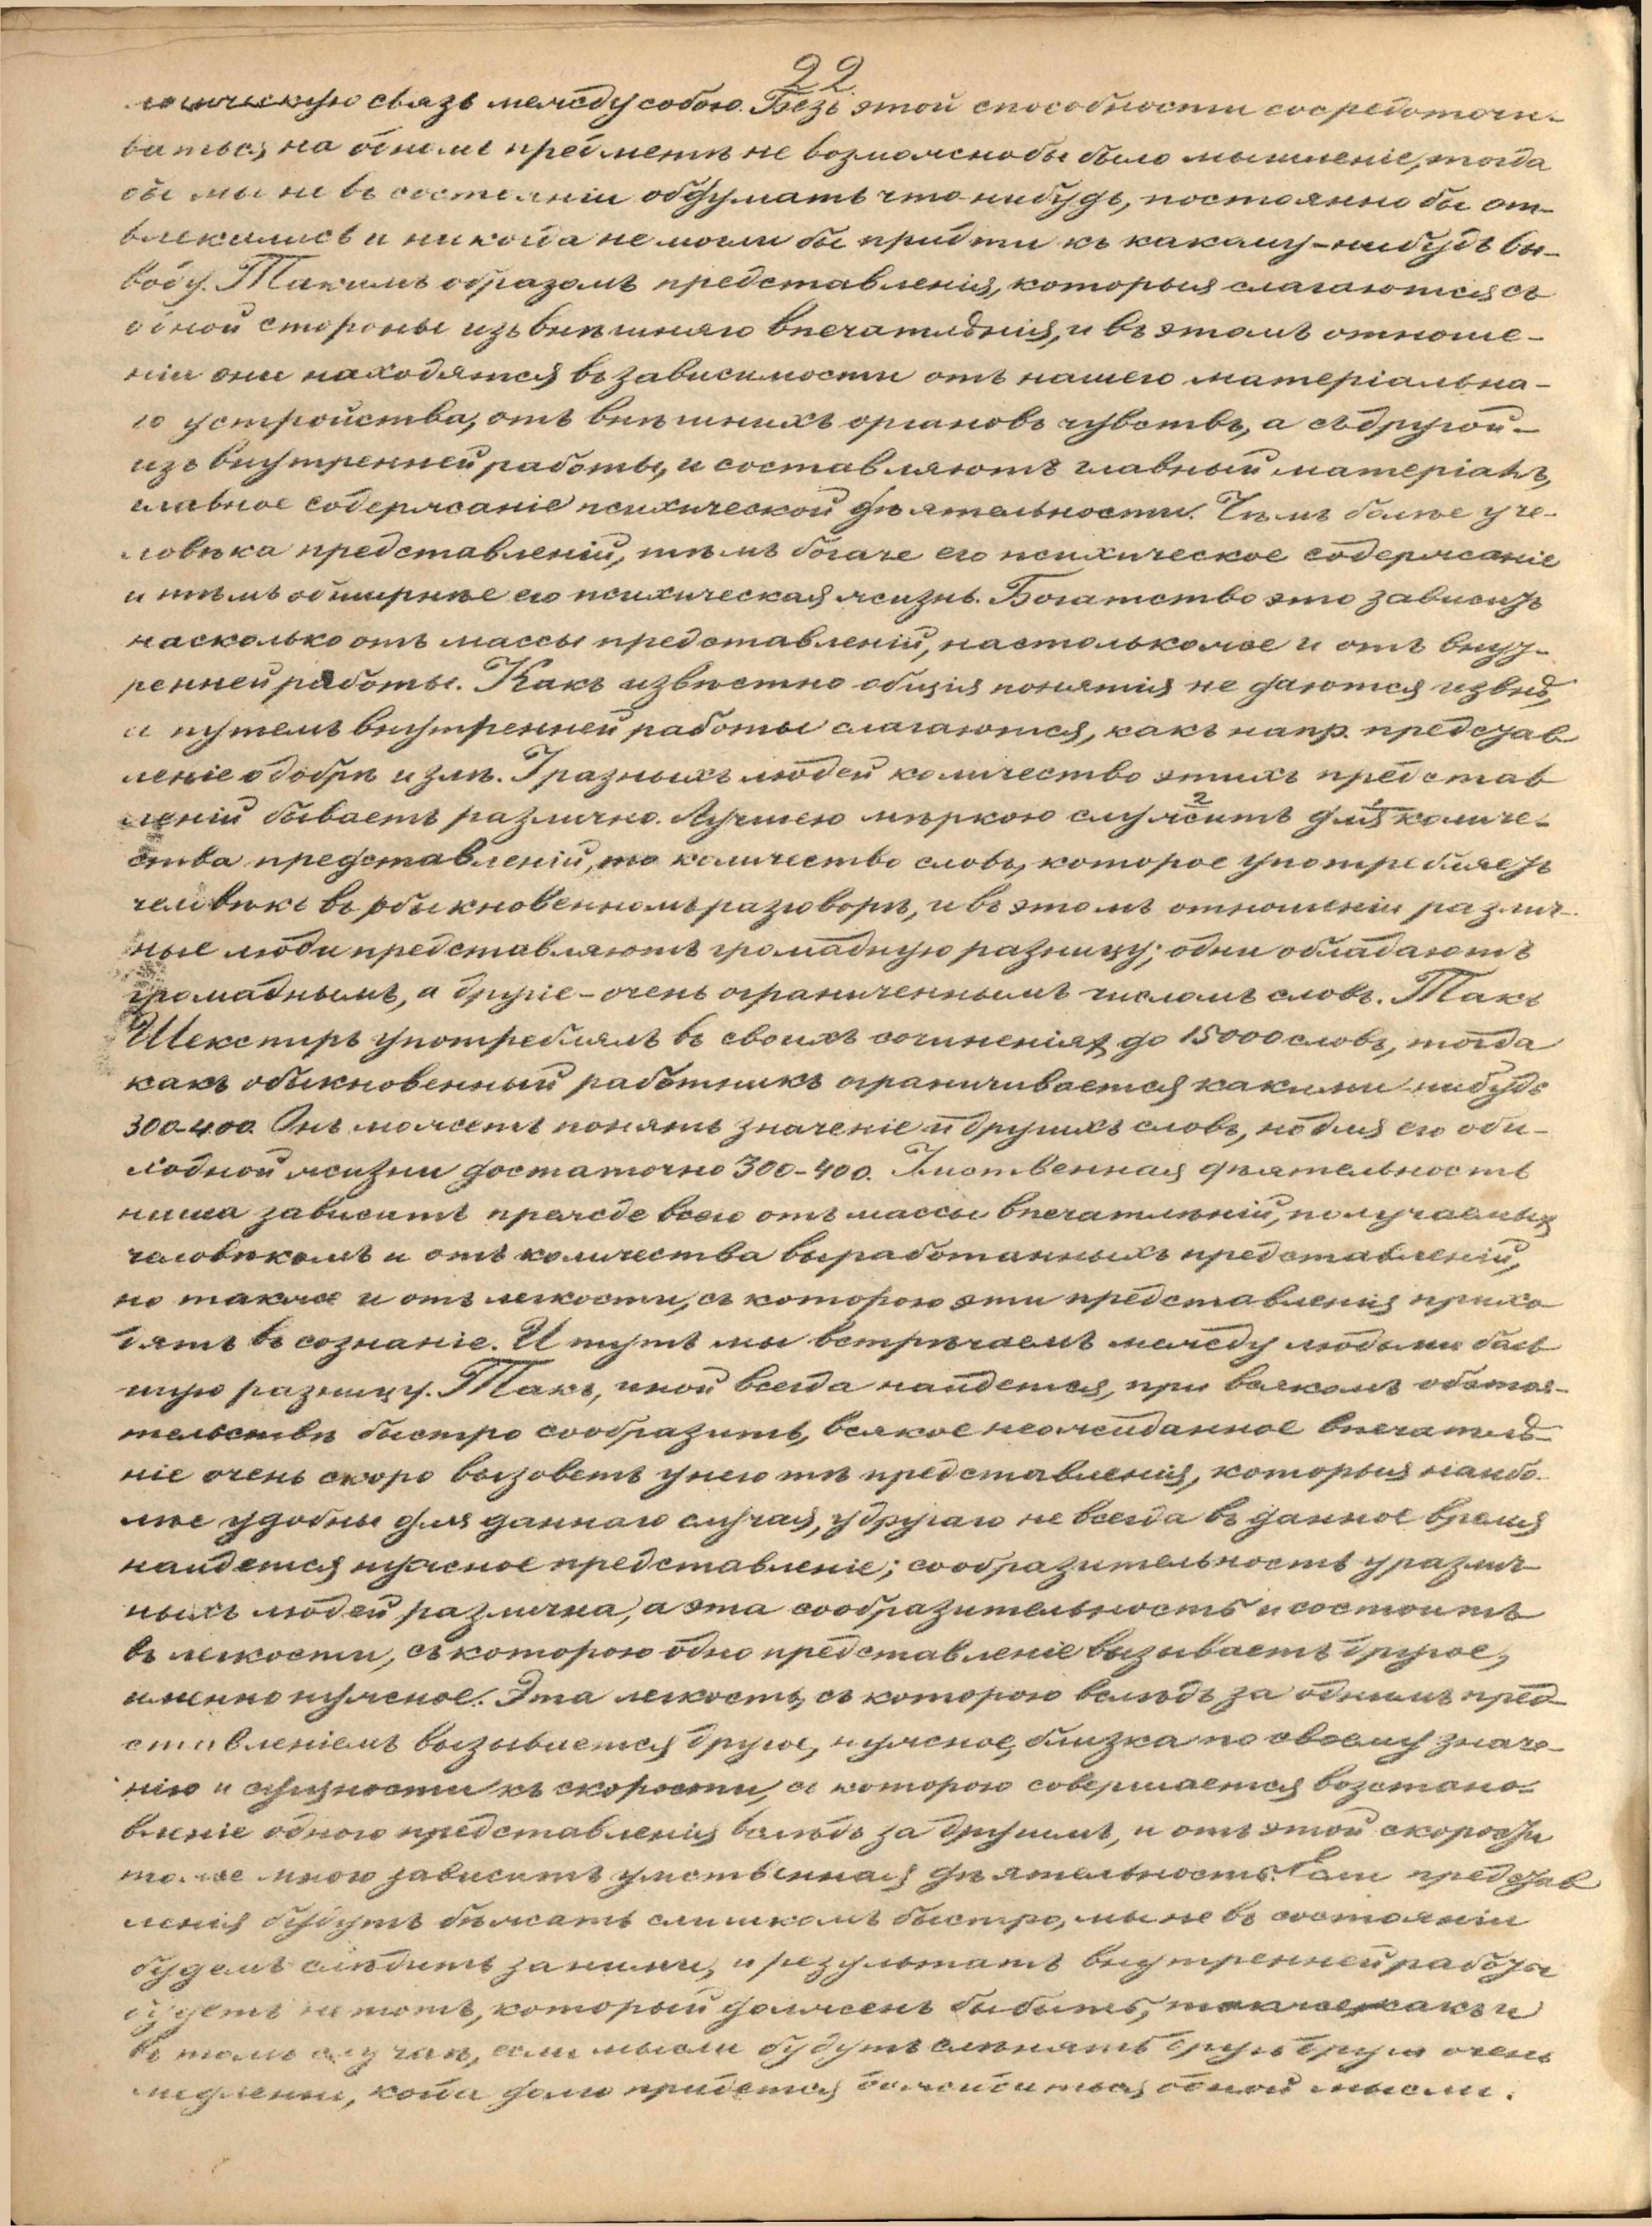 22
логическую связь между собою. Безъ этой способности сосредоточи-
ваться на одномъ предметѣ не возможно бы было мышленіе, тогда
бы мы не въ состояніи обдумать что нибудь, постоянно бы от-
влекались и никогда не могли бы придти къ какому-нибудь вы-
воду. Такимъ образомъ представленія, которыя слагаются съ
одной стороны изъ внѣшняго впечатлѣнія, и въ этомъ отноше-
ніи они находятся въ зависимости отъ нашего матеріальна-
го устройства, отъ внѣшнихъ органовъ чувствъ, а съ другой-
изъ внутренней работы, и составляютъ главный матеріалъ,
главное содержаніе психической дѣятельности. Чѣмъ болѣе у че-
ловѣка представленій, тѣмъ богаче его психическое содержаніе
и тѣмъ обширнѣе его психическая жизнь. Богатство это зависитъ
насколько отъ массы представленій, настолько же и отъ внут-
ренней работы. Какъ извѣстно общія понятія не даются извнѣ,
а путемъ внутренней работы слагаются, какъ напр. представ
леніе о добрѣ и злѣ. У разныхъ людей количество этихъ представ
леній бываетъ различно. Лучшею мѣркою служитъ для количе-
ства представленій, то количество словъ, которое употребляетъ
человѣкъ въ обыкновенномъ разговорѣ, и въ этомъ отношеніи различ-
ные люди представляютъ громадную разницу; одни обладаютъ
громаднымъ, а другіе - очень ограниченнымъ числомъ словъ. Такъ
Шекспиръ употреблялъ въ своихъ сочиненіяхъ до 15000 словъ, тогда
какъ обыкновенный работникъ ограничивается какими нибудь
300-400. Онъ можетъ понять значеніе и другихъ словъ, но для его оби-
ходной жизни достаточно 300-400. Умственная дѣятельность
наша зависитъ прежде всего отъ массы впечатлѣній, получаемыхъ
человѣкомъ и отъ количества выработанныхъ представленій,
но также и отъ легкости, съ которою эти представленія прихо
дятъ въ сознаніе. И тутъ мы встрѣчаемъ между людьми боль
шую разницу. Такъ, иной всегда найдется, при всякомъ обстоя-
тельствѣ быстро сообразить, всякое неожиданное впечатлѣ-
ніе очень скоро вызоветъ у него тѣ представленія, которыя наибо-
лѣе удобны для даннаго случая, у другаго не всегда въ данное время
найдется нужное представленіе; сообразительность у различ-
ныхъ людей различна, а эта сообразительность и состоитъ
въ легкости, съ которою одно представленіе вызываетъ другое,
именно нужное. Эта легкость, съ которою вслѣдъ за однимъ пред-
ставленіемъ вызывается другое, нужное, близка по своему значе-
нію и сущности къ скорости, съ которою совершается возстано-
вленіе одного представленія вслѣдъ за другимъ, и отъ этой скорости
тоже много зависитъ умственная дѣятельность. Если представ
ленія будутъ бѣжать слишкомъ быстро, мы не въ состояніи
будемъ слѣдить за ними, и результатъ внутренней работы
будетъ не тотъ, который долженъ бы быть, также, какъ и
въ томъ случаѣ, если мысли будутъ смѣнять другъ друга очень
медленно, когда долго придется дожидаться одной мысли.